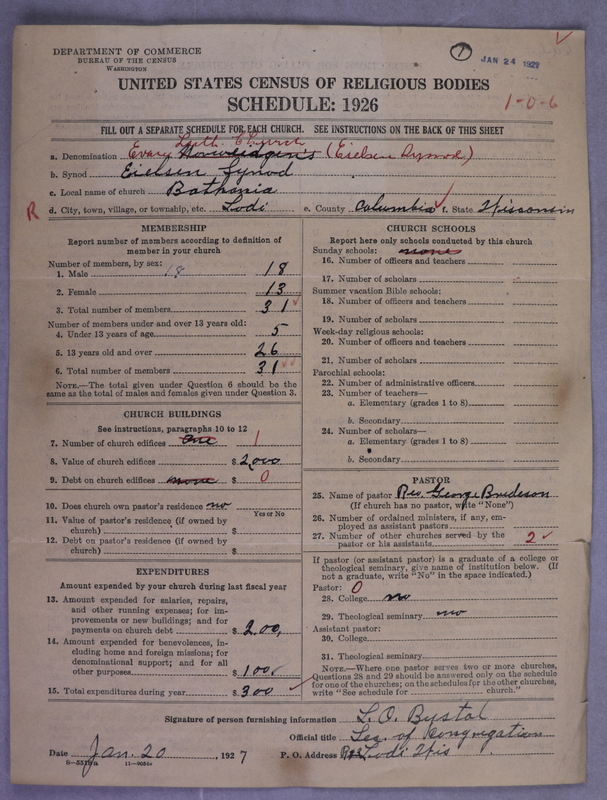 DEPARTMENT OF COMMERCE
BUREAU OF THE CENSUS
WASHINGTON
7
JAN 24 1927
UNITED STATES CENSUS OF RELIGIOUS BODIES
SCHEDULE: 1926
1-0-6
FILL OUT A SEPARATE SCHEDULE FOR EACH CHURCH. SEE INSTRUCTIONS ON THE BACK OF THIS SHEET
Luth. Church
a. Denomination Evang (Eielsen Synod)
b. Synod Eielsen Synod
c. Local name of church Bethania
R d. City, town, village, or township, etc. Lodi e. County Columbia f. State Wisconsin
MEMBERSHIP
Report number of members according to definition of
member in your church
Number of members, by sex:
1. Male 18 18
2. Female 13
3. Total number of members 31
Number of members under and over 13 years old:
4. Under 13 years of age 5
5. 13 years old and over 26
6. Total number of members 31
NOTE.—The total given under Question 6 should be the
same as the total of males and females given under Question 3.
CHURCH BUILDINGS
See instructions, paragraphs 10 to 12
7. Number of church edifices one 1
8. Value of church edifices $ 2,000
9. Debt on church edifices none $ 0
10. Does church own pastor's residence no
Yes or No
11. Value of pastor's residence (if owned by
church) $
12. Debt on pastor's residence (if owned by
church) $
EXPENDITURES
Amount expended by your church during last fiscal year
13. Amount expended for salaries, repairs,
and other running expenses; for im-
provements or new buildings; and for
payments on church debt $ 200
14. Amount expended for benevolences, in-
cluding home and foreign missions; for
denominational support; and for all
other purposes $ 100
15. Total expenditures during year $ 300
CHURCH SCHOOLS
Report here only schools conducted by this church
Sunday schools: none
16. Number of officers and teachers
17. Number of scholars
Summer vacation Bible schools:
18. Number of officers and teachers
19. Number of scholars
Week-day religious schools:
20. Number of officers and teachers
21. Number of scholars
Parochial schools:
22. Number of administrative officers
23. Number of teachers—
a. Elementary (grades 1 to 8)
b. Secondary
24. Number of scholars—
a. Elementary (grades 1 to 8)
b. Secondary
PASTOR
25. Name of pastor Rev. George
(If church has no pastor, write "None")
26. Number of ordained ministers, if any, em-
ployed as assistant pastors
27. Number of other churches served by the
pastor or his assistants 2
If pastor (or assistant pastor) is a graduate of a college or
theological seminary, give name of institution below. (If
not a graduate, write "No" in the space indicated.)
Pastor: 0
28. College no
29. Theological seminary no
Assistant pastor:
30. College
31. Theological seminary
NOTE.—Where one pastor serves two or more churches,
Questions 28 and 29 should be answered only on the schedule
for one of the churches; on the schedules for the other churches,
write "See schedule for church."
Signature of person furnishing information L. O.
Official title Sec. of Congregation
Date Jan. 20 , 1927 P. O. Address Lodi Wis
11-9051